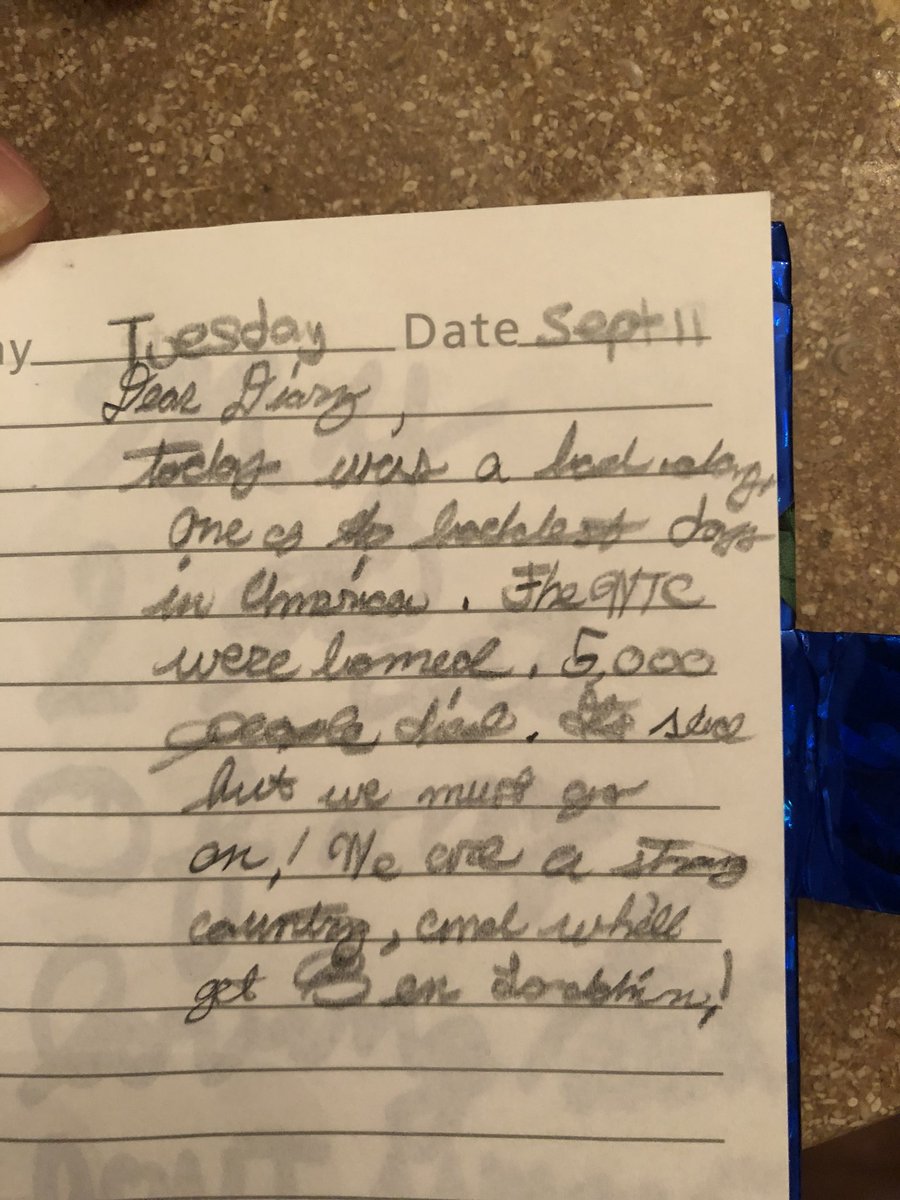 ay Tuesday Date Sept 11
Dear Diary,
today was a bad day,
One of the baddest days
in America. The WTC
were bomed. 5,000
people died. Its sad
but we must go
on! We are a strong
country, and whill
get